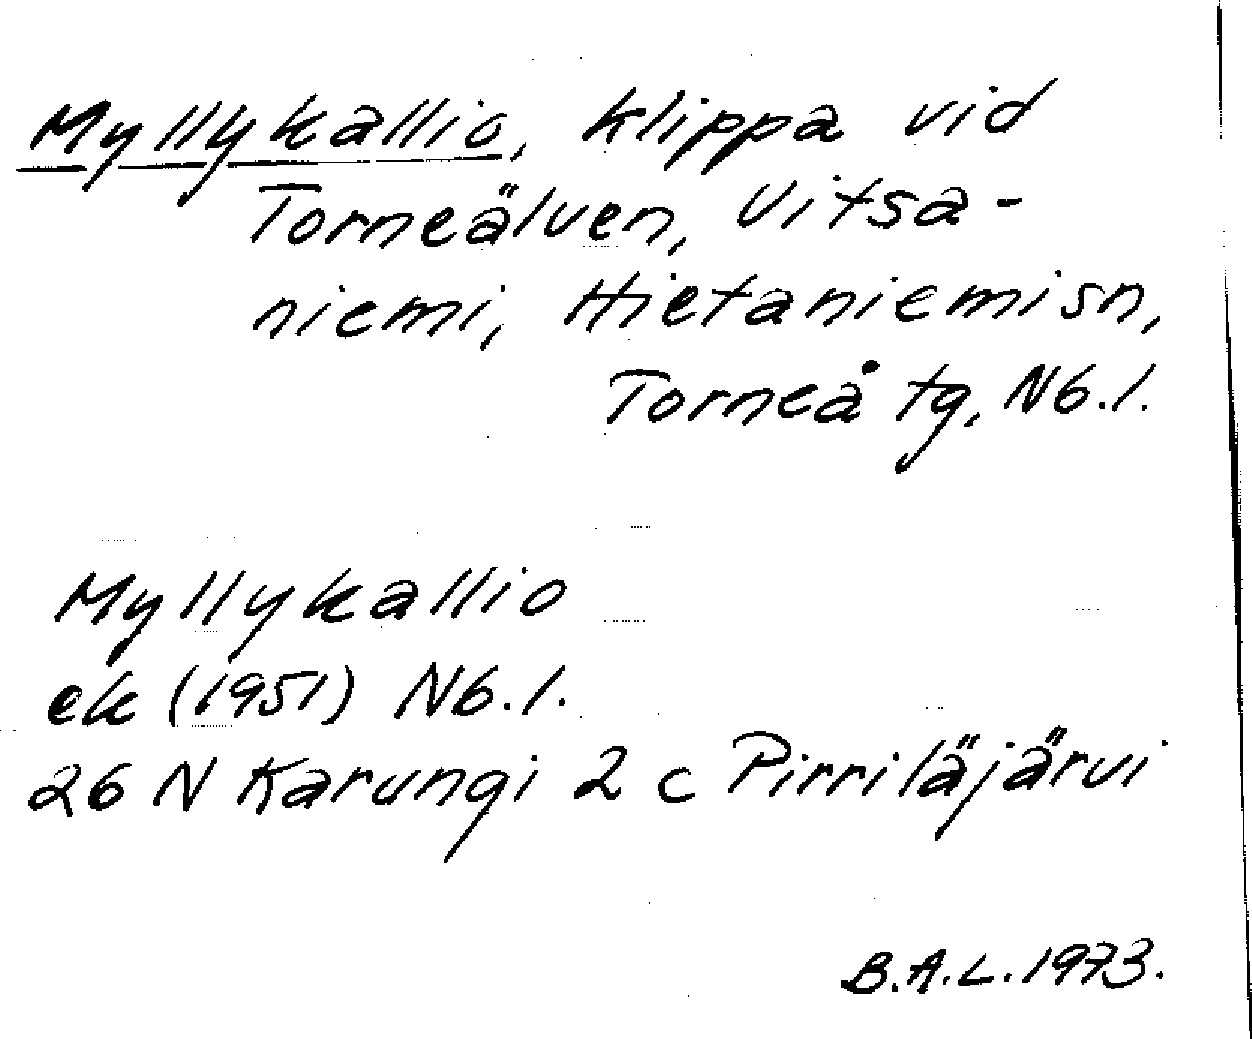 Myllykallio, klippa vid
Torneälven, Vitsa-
niemi, Hietaniemi sn,
Torneå tg, Nb.l.
Myllykallio
ek (1951) Nb.l.
26 N Karungi 2 c Pirriläjärvi
B.A.L. 1973.